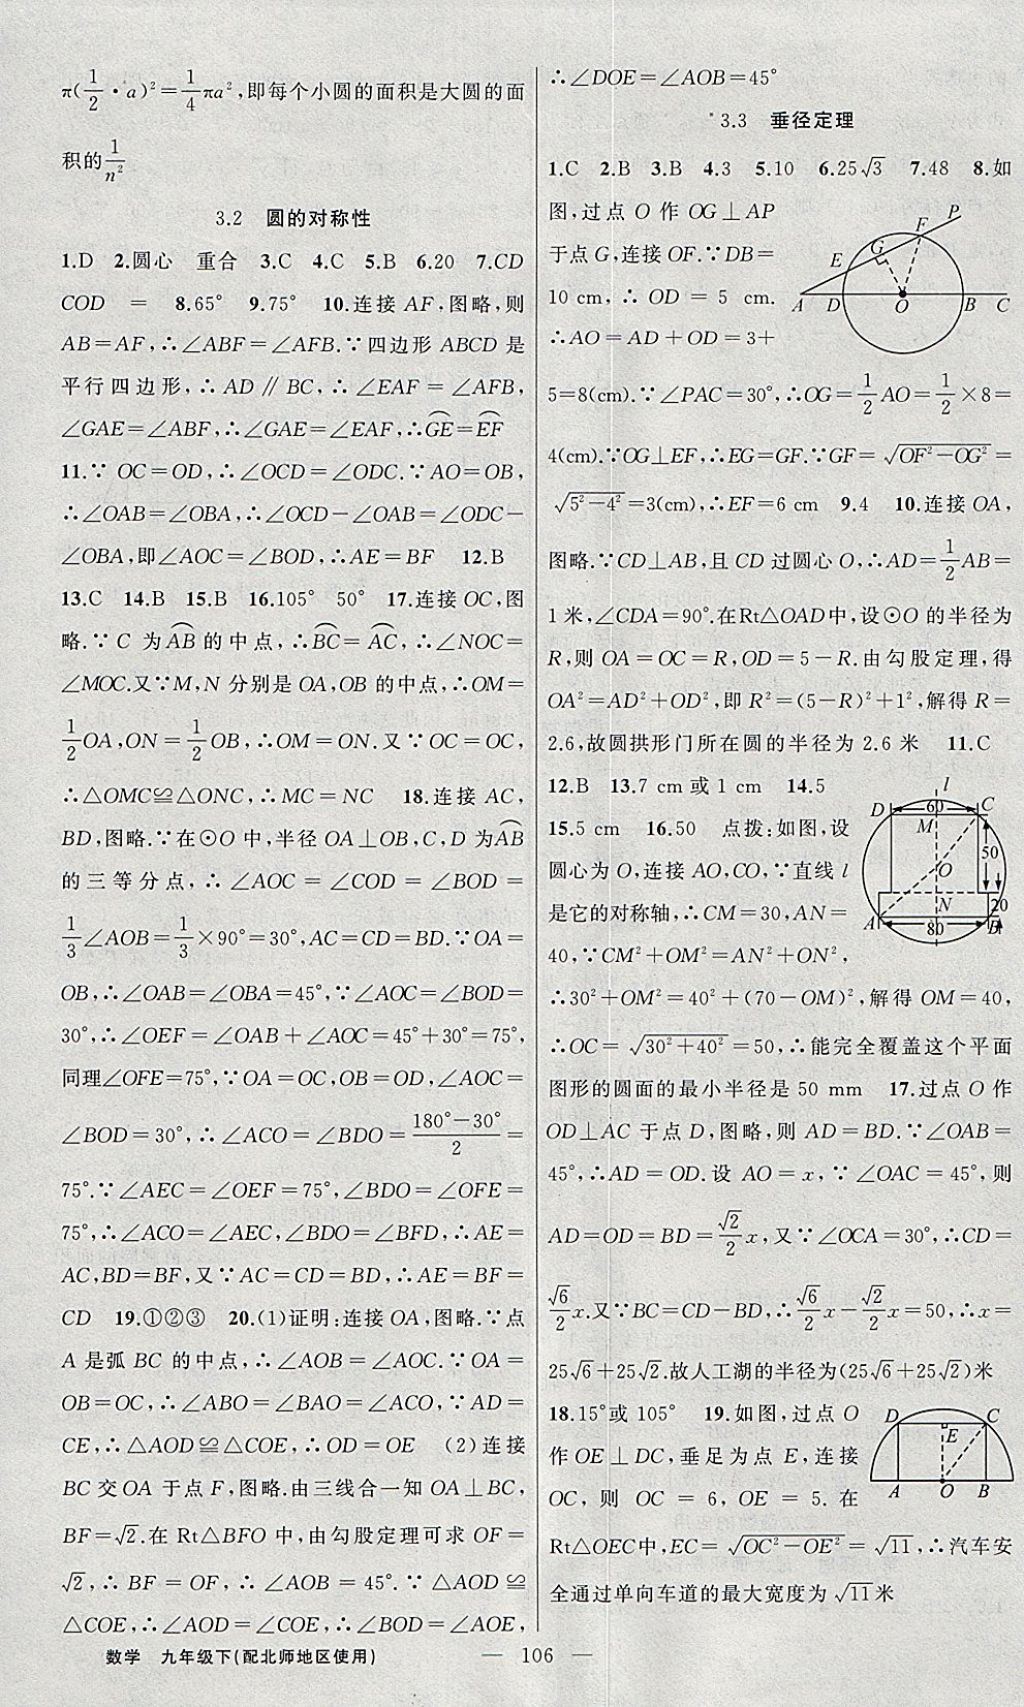 π(1/2·a)²=1/4πa²,即每个小圆的面积是大圆的面
积的1/n²
3.2 圆的对称性
1.D 2.圆心 重合 3.C 4.C 5.B 6.20 7.CD
COD = 8.65° 9.75° 10.连接 AF,图略,则
AB=AF,∴∠ABF=∠AFB.∵四边形 ABCD 是
平行四边形,∴AD∥BC,∴∠EAF=∠AFB,
∠GAE=∠ABF,∴∠GAE=∠EAF,∴G͡E=E͡F
11.∵ OC=OD,∴∠OCD=∠ODC.∵AO=OB,
∴∠OAB=∠OBA,∴∠OCD-∠OAB=∠ODC-
∠OBA,即∠AOC=∠BOD,∴AE=BF 12.B
13.C 14.B 15.B 16.105° 50° 17.连接 OC,图
略.∵ C 为A͡B的中点,∴B͡C=A͡C,∴∠NOC=
∠MOC.又∵M,N 分别是 OA,OB 的中点,∴OM=
1/2OA,ON=1/2OB,∴OM=ON.又∵OC=OC,
∴△OMC≌△ONC,∴MC=NC 18.连接 AC,
BD,图略.∵在⊙O 中,半径 OA⊥OB,C,D 为A͡B
的三等分点,∴∠AOC=∠COD=∠BOD=
1/3∠AOB=1/3×90°=30°,AC=CD=BD.∵OA=
OB,∴∠OAB=∠OBA=45°,∵∠AOC=∠BOD=
30°,∴∠OEF=∠OAB+∠AOC=45°+30°=75°,
同理∠OFE=75°,∵OA=OC,OB=OD,∠AOC=
∠BOD=30°,∴∠ACO=∠BDO=(180°-30°)/2=
75°.∵∠AEC=∠OEF=75°,∠BDO=∠OFE=
75°,∴∠ACO=∠AEC,∠BDO=∠BFD,∴AE=
AC,BD=BF,又∵AC=CD=BD,∴AE=BF=
CD 19.①②③ 20.(1)证明:连接 OA,图略.∵点
A 是弧 BC 的中点,∴∠AOB=∠AOC.∵OA=
OB=OC,∴∠ABO=∠BAO=∠ACO,∵AD=
CE,∴△AOD≌△COE,∴OD=OE (2)连接
BC 交 OA 于点 F,图略.由三线合一知 OA⊥BC,
BF=√2.在 Rt△BFO 中,由勾股定理可求 OF=
√2,∴BF=OF,∴∠AOB=45°.∵△AOD≌
△COE,∴∠AOD=∠COE,∴∠BOD=∠AOE,
∴∠DOE=∠AOB=45°
3.3 垂径定理
1.C 2.B 3.B 4.3 5.10 6.25√3 7.48 8.如
图,过点 O 作 OG⊥AP
于点 G,连接 OF.∵DB=
10 cm,∴OD=5 cm.
∴AO=AD+OD=3+
P
F
G
E
A D O B C
5=8(cm).∵∠PAC=30°,∴OG=1/2AO=1/2×8=
4(cm).∵OG⊥EF,∴EG=GF.∵GF=√(OF²-OG²)=
√(5²-4²)=3(cm),∴EF=6 cm 9.4 10.连接 OA,
图略.∵CD⊥AB,且 CD 过圆心 O,∴AD=1/2AB=
1 米,∠CDA=90°.在 Rt△OAD中,设⊙O 的半径为
R,则 OA=OC=R,OD=5-R.由勾股定理,得
OA²=AD²+OD²,即 R²=(5-R)²+1²,解得 R=
2.6,故圆拱形门所在圆的半径为 2.6 米 11.C
12.B 13.7 cm 或 1 cm 14.5
15.5 cm 16.50 点拨:如图,设
圆心为 O,连接 AO,CO,∵直线 l
是它的对称轴,∴CM=30,AN=
40,∵CM²+OM²=AN²+ON²,
l
D 60 C
M
50
O
N 20
A 80 B
∴30²+OM²=40²+(70-OM)²,解得 OM=40,
∴OC=√(30²+40²)=50,∴能完全覆盖这个平面
图形的圆面的最小半径是 50 mm 17.过点 O 作
OD⊥AC 于点 D,图略,则 AD=BD.∵∠OAB=
45°,∴AD=OD.设 AO=x,∵∠OAC=45°,则
AD=OD=BD=√2/2x,又∵∠OCA=30°,∴CD=
√6/2x.又∵BC=CD-BD,∴√6/2x-√2/2x=50,∴x=
25√6+25√2.故人工湖的半径为(25√6+25√2)米
18.15°或 105° 19.如图,过点 O
作 OE⊥DC,垂足为点 E,连接
OC,则 OC=6,OE=5.在
D C
E
A O B
Rt△OEC中,EC=√(OC²-OE²)=√11,∴汽车安
全通过单向车道的最大宽度为√11米
数学 九年级下(配北师地区使用)
— 106 —